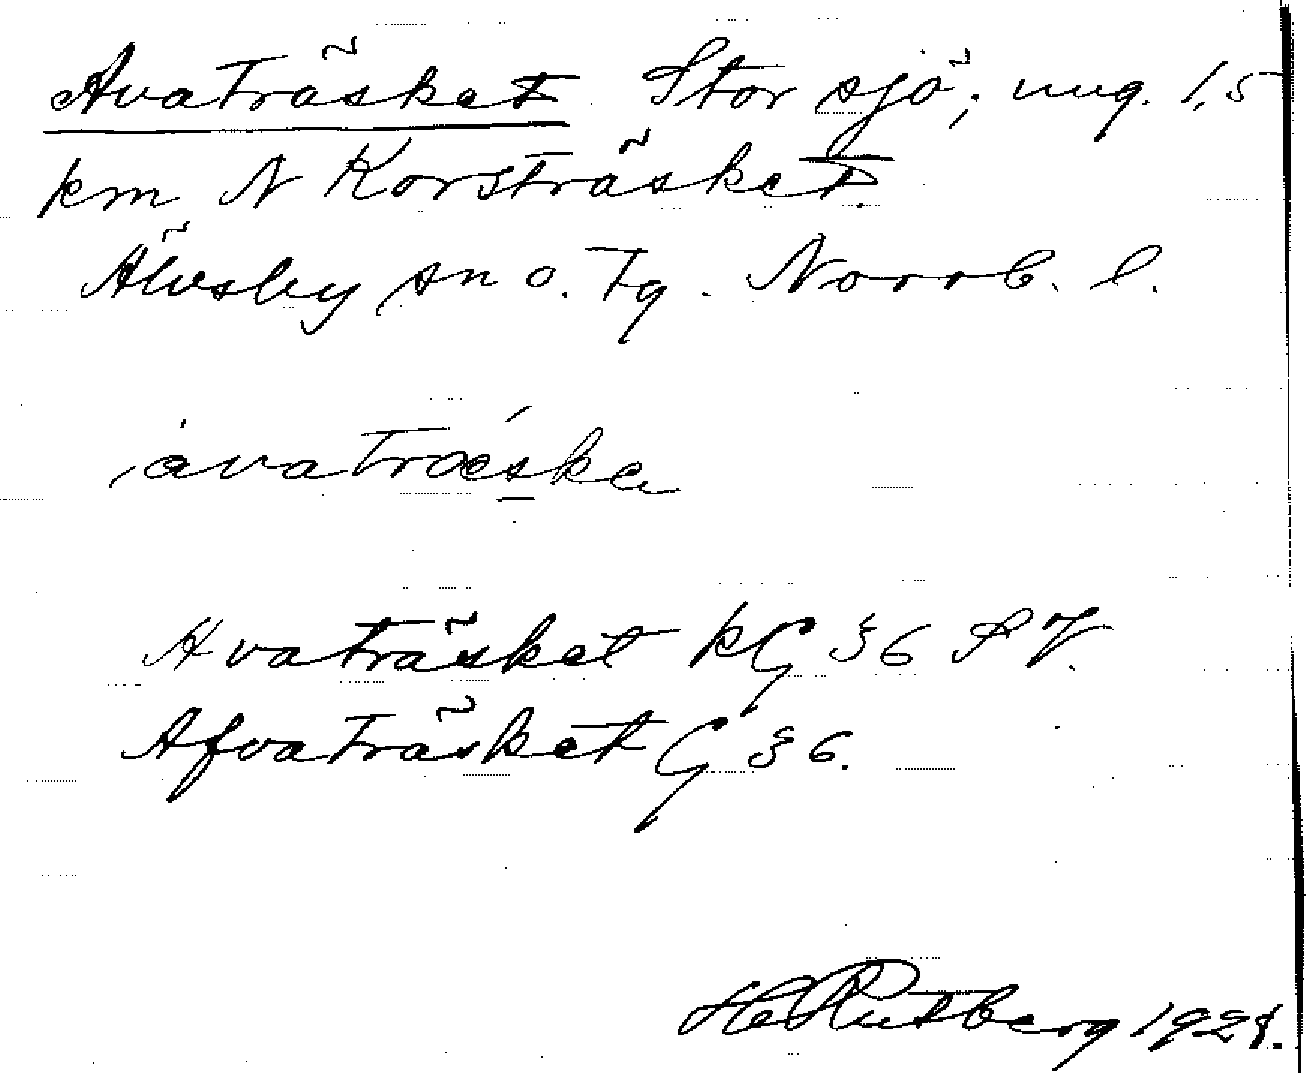 Avaträsket. Stor sjö; ung. 1,5
km N Korsträsket.
Älvsby sn o. tg. Norrb. l.
ˏàvatræ̀ska
Avaträsket kG §6 SV.
Afvaträsket G §6.
H Rutberg